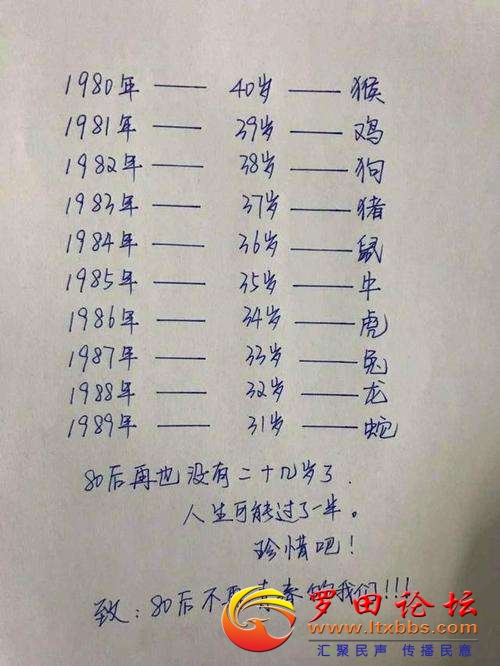 1980年 —— 40岁 —— 猴
1981年 —— 39岁 —— 鸡
1982年 —— 38岁 —— 狗
1983年 —— 37岁 —— 猪
1984年 —— 36岁 —— 鼠
1985年 —— 35岁 —— 牛
1986年 —— 34岁 —— 虎
1987年 —— 33岁 —— 兔
1988年 —— 32岁 —— 龙
1989年 —— 31岁 —— 蛇
80后再也没有二十几岁了.
人生可能过了一半。
珍惜吧!
致:80后不再青春的我们!!!
罗田论坛
www.ltxbbs.com
汇聚民声 传播民意